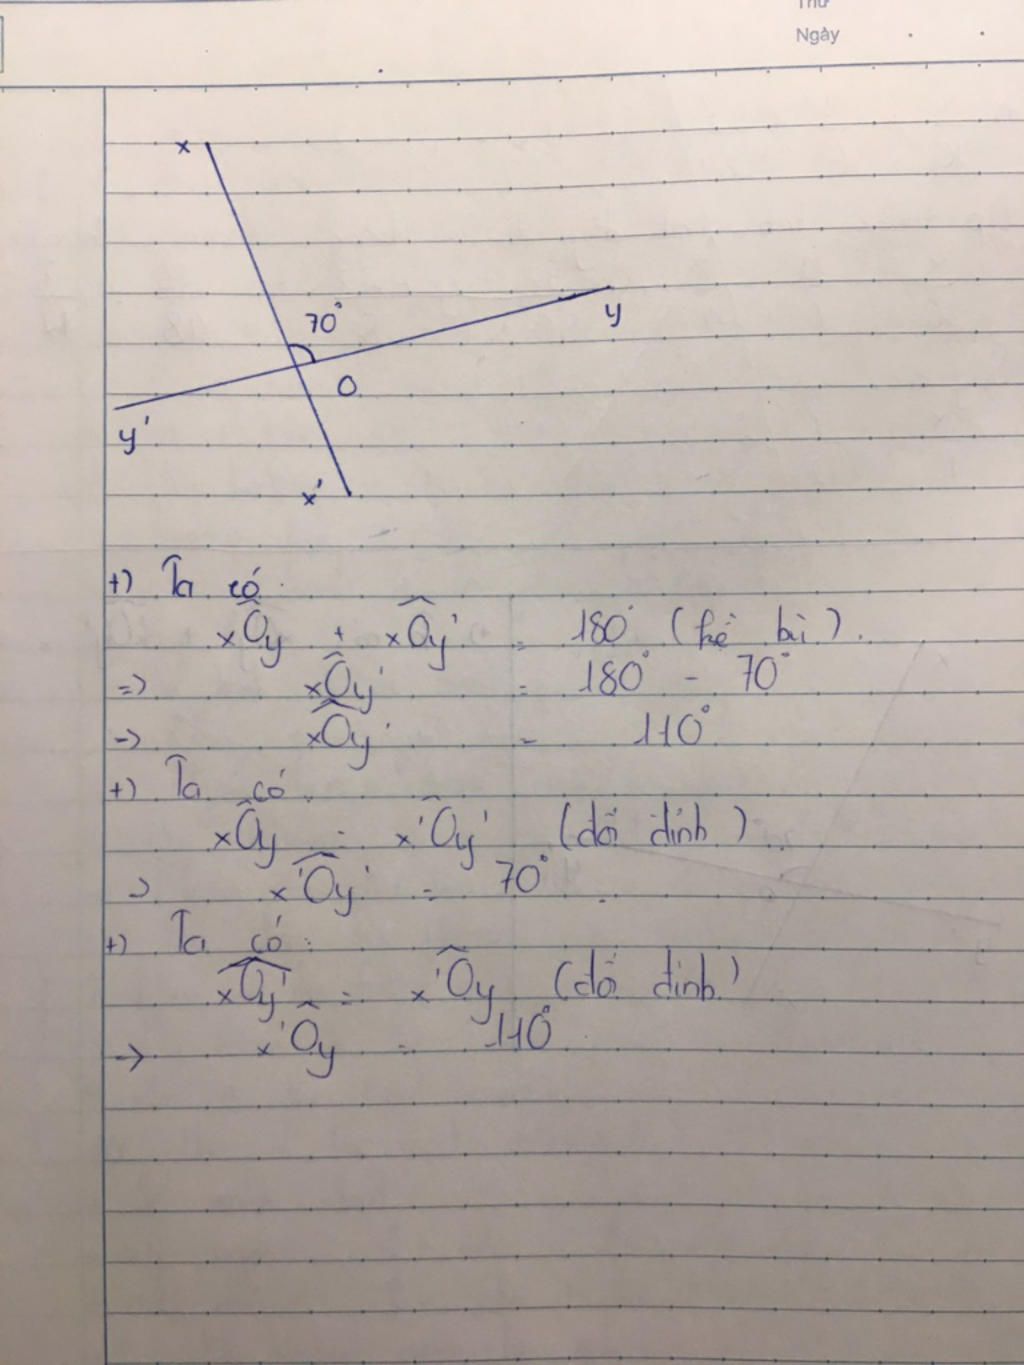 Thứ
Ngày
x
70°
y
O
y'
x'
+) Ta có:
xÔy + xÔy' = 180° (kề bù).
=> xÔy' = 180° - 70°
=> xÔy' = 110°
+) Ta có:
xÔy = x'Ôy' (đối đỉnh)
=> x'Ôy' = 70°
+) Ta có:
xÔy' = x'Ôy (đối đỉnh)
=> x'Ôy = 110°